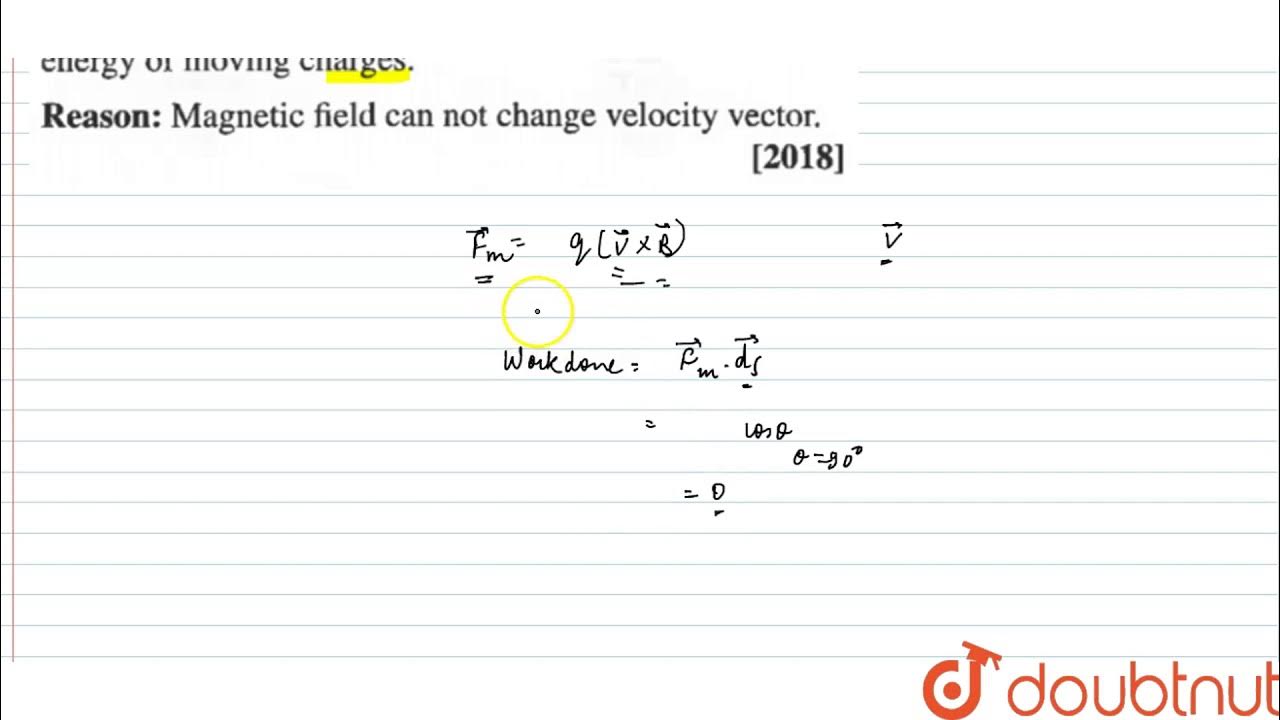 energy of moving charges.
Reason: Magnetic field can not change velocity vector.
[2018]
F⃗m = q(v⃗ × B⃗) V⃗
Work done = F⃗m . d⃗s
= cosθ
θ = 90°
= 0
doubtnut